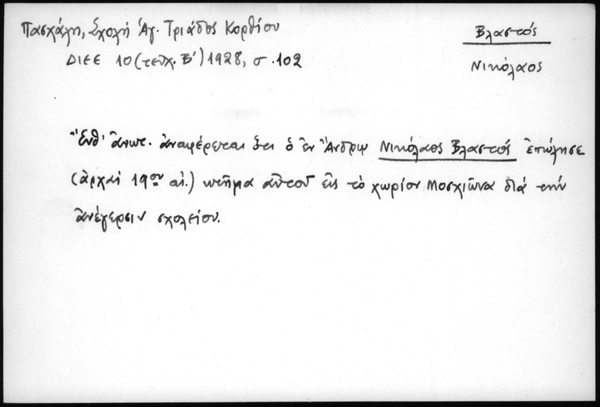 Πασχάλη, Σχολή Ἁγ. Τριάδος Κορθίου
ΔΙΕΕ 10 (τεῦχ. Β') 1928, σ. 102
Βλαστός
Νικόλαος
Ἐνθ' ἄνωτ. ἀναφέρεται ὅτι ὁ ἐν Ἄνδρῳ Νικόλαος Βλαστός ἐπώλησε
(ἀρχαί 19ου αἰ.) κτῆμα αὐτοῦ εἰς τό χωρίον Μοσχιῶνα διά τήν
ἀνέγερσιν σχολείου.